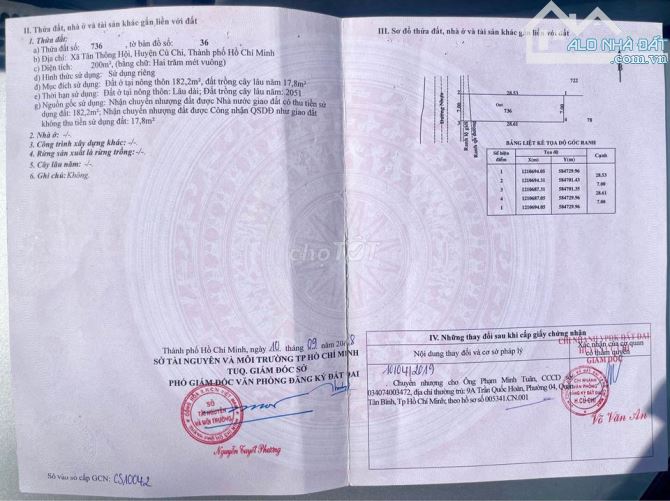 II. Thửa đất, nhà ở và tài sản khác gắn liền với đất
1. Thửa đất:
a) Thửa đất số: 736, tờ bản đồ số: 36
b) Địa chỉ: Xã Tân Thông Hội, Huyện Củ Chi, Thành phố Hồ Chí Minh
c) Diện tích: 200m², (bằng chữ: Hai trăm mét vuông)
d) Hình thức sử dụng: Sử dụng riêng
đ) Mục đích sử dụng: Đất ở tại nông thôn 182,2m², đất trồng cây lâu năm 17,8m²
e) Thời hạn sử dụng: Đất ở tại nông thôn: Lâu dài; Đất trồng cây lâu năm: 2051
g) Nguồn gốc sử dụng: Nhận chuyển nhượng đất được Nhà nước giao đất có thu tiền sử
dụng đất: 182,2m²; Nhận chuyển nhượng đất được Công nhận QSDĐ như giao đất
không thu tiền sử dụng đất: 17,8m²
2. Nhà ở: -/-
3. Công trình xây dựng khác: -/-
4. Rừng sản xuất là rừng trồng: -/-
5. Cây lâu năm: -/-
6. Ghi chú: Không.
Thành phố Hồ Chí Minh, ngày 10 tháng 09 năm
SỞ TÀI NGUYÊN VÀ MÔI TRƯỜNG TP HỒ CHÍ MINH
TUQ. GIÁM ĐỐC SỞ
PHÓ GIÁM ĐỐC VĂN PHÒNG ĐĂNG KÝ ĐẤT ĐAI
SỞ
TÀI NGUYÊN
VÀ MÔI TRƯỜNG
Nguyễn Tuyết Phương
Số vào sổ cấp GCN: CS10042
III. Sơ đồ thửa đất, nhà ở và tài sản khác gắn liền với đất
ALO NHÀ ĐẤT
722
1
28.53
Đường Nhựa
Ranh lộ giới
7.00
Ont
736
7.00
3
28.61
4
78
BẢNG LIỆT KÊ TỌA ĐỘ GÓC RANH
Số hiệu điểm
Tọa độ
X(m)
Y(m)
Cạnh
1 1210694.05 584729.96
28.53
2 1210694.31 584701.43
7.00
3 1210687.31 584701.35
28.61
4 1210687.05 584729.96
7.00
1 1210694.05 584729.96
chợTỐT
IV. Những thay đổi sau khi cấp giấy chứng nhận
Nội dung thay đổi và cơ sở pháp lý
Xác nhận của cơ quan có thẩm quyền
CHI NHÁNH VPĐK ĐẤT ĐAI
GIÁM ĐỐC
10/04/2019
Chuyển nhượng cho Ông Phạm Minh Tuân, CCCD
034074003472, địa chỉ thường trú: 9A Trần Quốc Hoàn, Phường 04, Quận
Tân Bình, Tp Hồ Chí Minh; theo hồ sơ số 005341.CN.001
CHI NHÁNH
VĂN PHÒNG
ĐĂNG KÝ ĐẤT ĐAI
H. CỦ CHI
Võ Văn An